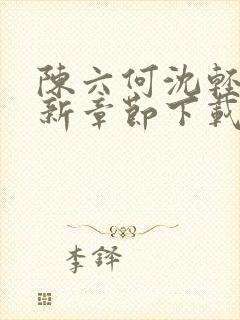 陳六何沈輕
新章節下載
李鐸